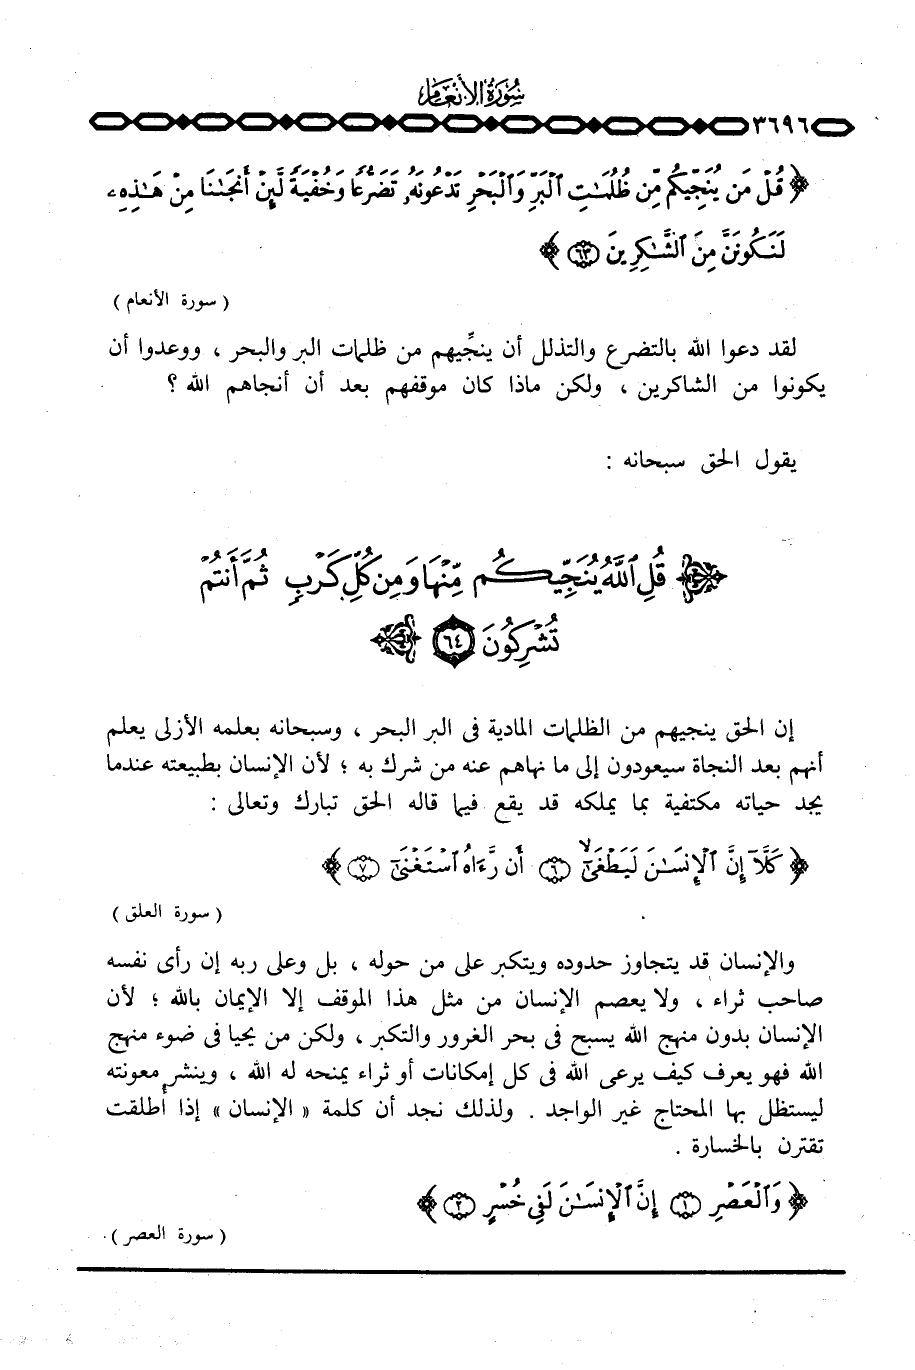 سُورَةُ الأَنْعَامِ
٣٦٩٦
﴿ قُلْ مَن يُنَجِّيكُم مِّن ظُلُمَٰتِ ٱلْبَرِّ وَٱلْبَحْرِ تَدْعُونَهُۥ تَضَرُّعًا وَخُفْيَةً لَّئِنْ أَنجَىٰنَا مِنْ هَٰذِهِۦ
لَنَكُونَنَّ مِنَ ٱلشَّٰكِرِينَ ٦٣ ﴾
( سورة الأنعام )
لقد دعوا الله بالتضرع والتذلل أن ينجِّيهم من ظلمات البر والبحر ، ووعدوا أن
يكونوا من الشاكرين ، ولكن ماذا كان موقفهم بعد أن أنجاهم الله ؟
يقول الحق سبحانه :
﴿ قُلِ ٱللَّهُ يُنَجِّيكُم مِّنْهَا وَمِن كُلِّ كَرْبٍ ثُمَّ أَنتُمْ
تُشْرِكُونَ ٦٤ ﴾
إن الحق ينجيهم من الظلمات المادية فى البر البحر ، وسبحانه بعلمه الأزلى يعلم
أنهم بعد النجاة سيعودون إلى ما نهاهم عنه من شرك به ؛ لأن الإنسان بطبيعته عندما
يجد حياته مكتفية بما يملكه قد يقع فيما قاله الحق تبارك وتعالى :
﴿ كَلَّآ إِنَّ ٱلْإِنسَٰنَ لَيَطْغَىٰٓ ٦ أَن رَّءَاهُ ٱسْتَغْنَىٰٓ ٧ ﴾
( سورة العلق )
والإنسان قد يتجاوز حدوده ويتكبر على من حوله ، بل وعلى ربه إن رأى نفسه
صاحب ثراء ، ولا يعصم الإنسان من مثل هذا الموقف إلا الإيمان بالله ؛ لأن
الإنسان بدون منهج الله يسبح فى بحر الغرور والتكبر ، ولكن من يحيا فى ضوء منهج
الله فهو يعرف كيف يرعى الله فى كل إمكانات أو ثراء يمنحه له الله ، وينشر معونته
ليستظل بها المحتاج غير الواجد . ولذلك نجد أن كلمة « الإنسان » إذا أُطلقت
تقترن بالخسارة .
﴿ وَٱلْعَصْرِ ١ إِنَّ ٱلْإِنسَٰنَ لَفِى خُسْرٍ ٢ ﴾
( سورة العصر )